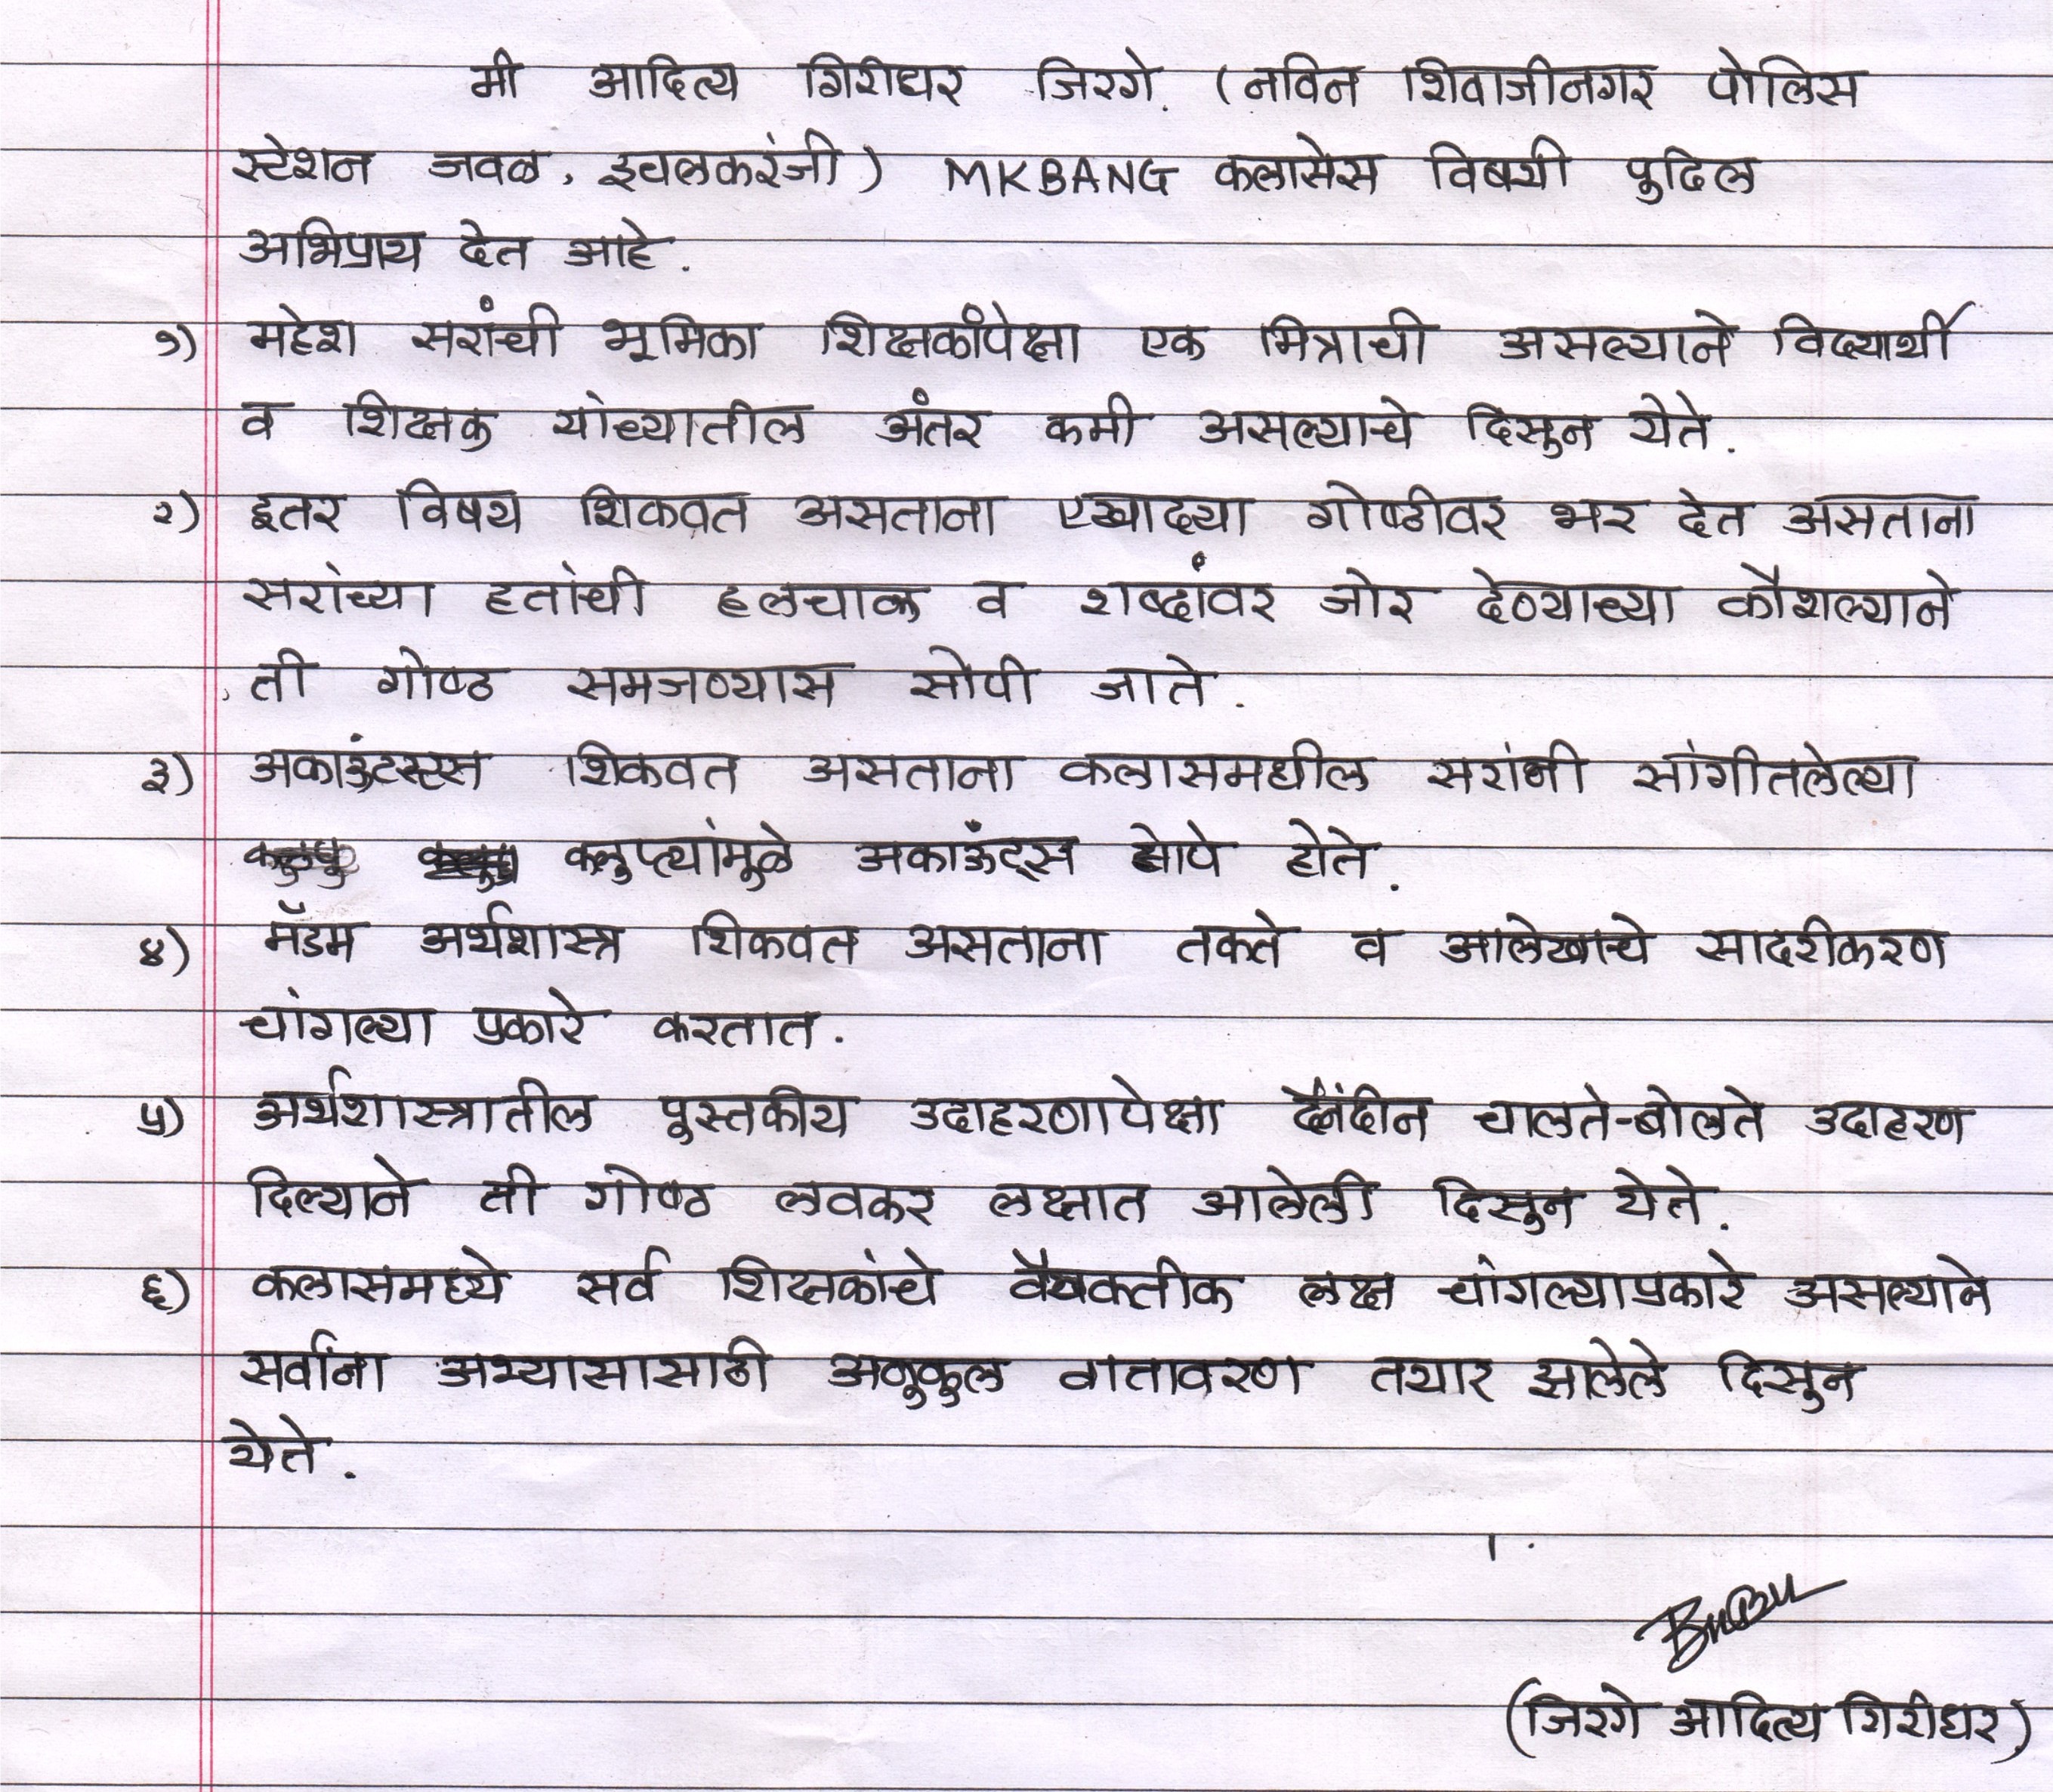 मी आदित्य गिरीधर जिरगे. (नविन शिवाजीनगर पोलिस
स्टेशन जवळ, इचलकरंजी) MKBANG क्लासेस विषयी पुढिल
अभिप्राय देत आहे.
१) महेश सरांची भूमिका शिक्षकांपेक्षा एक मित्राची असल्याने विद्यार्थी
व शिक्षक यांच्यातील अंतर कमी असल्याचे दिसुन येते.
२) इतर विषय शिकवत असताना एखाद्या गोष्ठीवर भर देत असताना
सरांच्या हतांची हलचाल व शब्दांवर जोर देण्याच्या कौशल्याने
ती गोष्ठ समजण्यास सोपी जाते.
३) अकाऊंटस्ट्स शिकवत असताना क्लासमधील सरांनी सांगीतलेल्या
क्लुप्त्यांमुळे अकाऊंट्स सोपे होते.
४) मॅडम अर्थशास्त्र शिकवत असताना तक्ते व आलेखाचे सादरीकरण
चांगल्या प्रकारे करतात.
५) अर्थशास्त्रातील पुस्तकीय उदाहरणापेक्षा दैनंदीन चालते-बोलते उदाहरण
दिल्याने ती गोष्ठ लवकर लक्षात आलेली दिसुन येते.
६) क्लासमध्ये सर्व शिक्षकांचे वैयक्तीक लक्ष चांगल्याप्रकारे असल्याने
सर्वांना अभ्यासासाठी अनुकुल वातावरण तयार झालेले दिसुन
येते.
(जिरगे आदित्य गिरीधर)